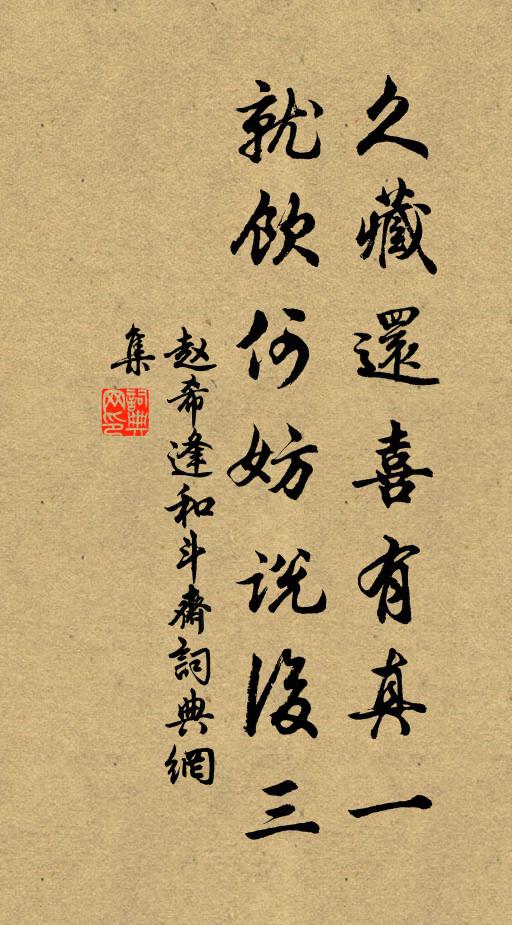 久藏還喜有真一
就飲何妨說後三
赵希逢和斗齋詞典網
集
詞典網印